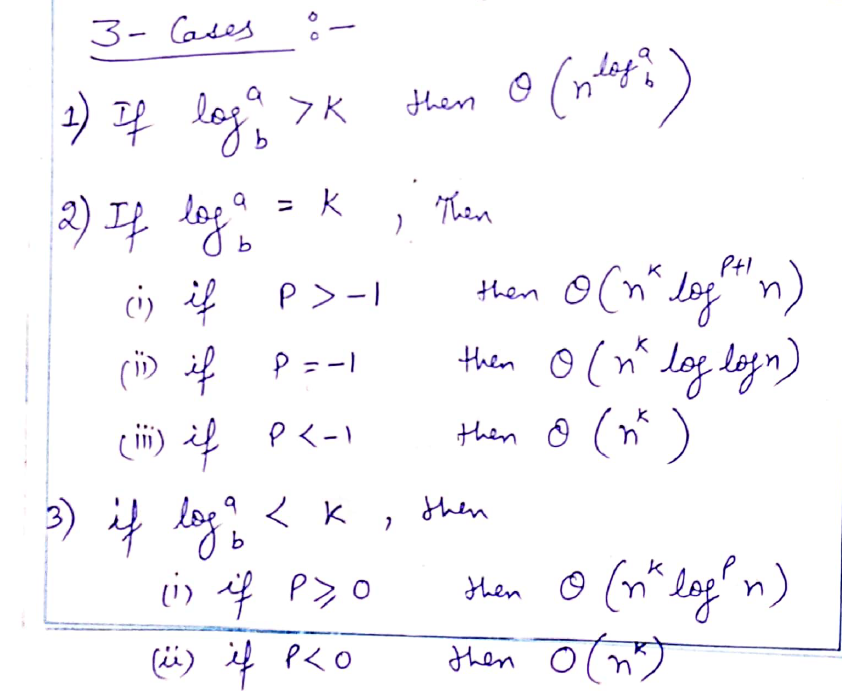 3 - Cases :-
1) If log_b^a > K then θ(n^{log_b^a})
2) If log_b^a = K , Then
(i) if P > -1 then θ(n^K log^{P+1} n)
(ii) if P = -1 then θ(n^K log log n)
(iii) if P < -1 then θ(n^K)
3) if log_b^a < K , then
(i) if P ≥ 0 then θ(n^K log^P n)
(ii) if P < 0 then O(n^K)